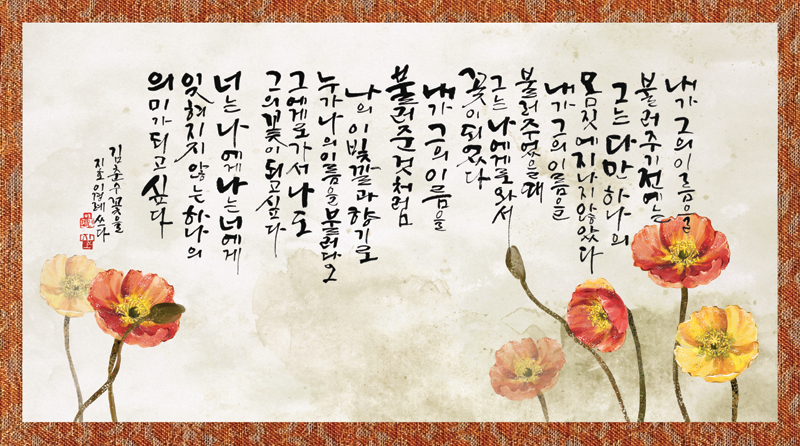 내가 그의 이름을
불러주기 전에는
그는 다만 하나의
몸짓에 지나지 않았다
내가 그의 이름을
불러주었을때
그는 나에게로 와서
꽃이 되었다
내가 그의 이름을
불러준것처럼
나의 이 빛깔과 향기로
누가 나의 이름을 불러다오
그에게로 가서 나도
그의 꽃이 되고싶다
너는 나에게 나는 너에게
잊혀지지 않는 하나의
의미가 되고 싶다
김춘수 꽃을
이경례 쓰다